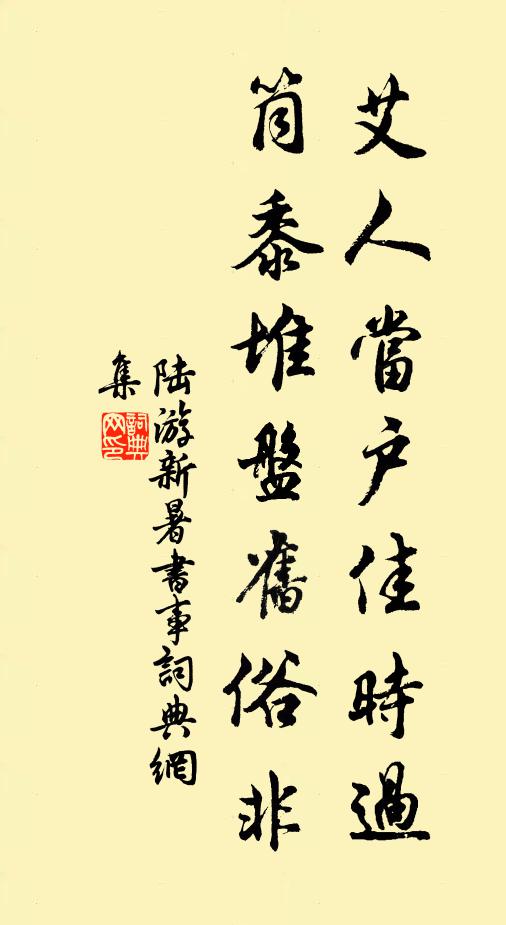 艾人當户佳時過
筒黍堆盤舊俗非
陆游新暑書事詞典網
集
詞典网印